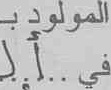 المولود بـ
في ..أ..